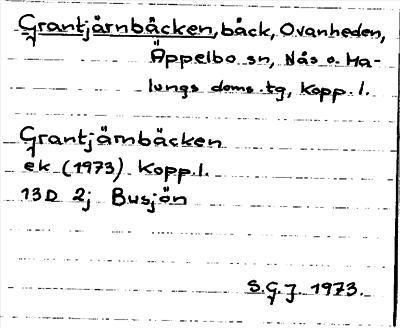 Grantjärnbäcken, bäck, Ovanheden,
Äppelbo sn, Nås o. Ma-
lungs doms.tg, Kopp. l.
Grantjärnbäcken
ek (1973) Kopp. l.
13D 2j Busjön
S.G.J. 1973.